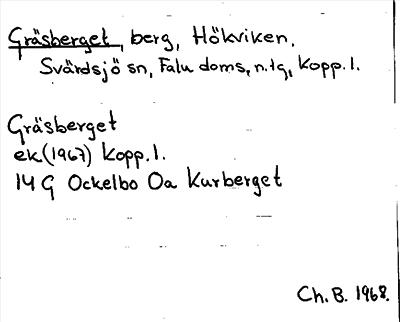 Gräsberget, berg, Hökviken,
Svärdsjö sn, Falu doms, n.tg, Kopp.l.
Gräsberget
ek.(1967) Kopp.l.
14 G Ockelbo Oa Kurberget
Ch. B. 1968.